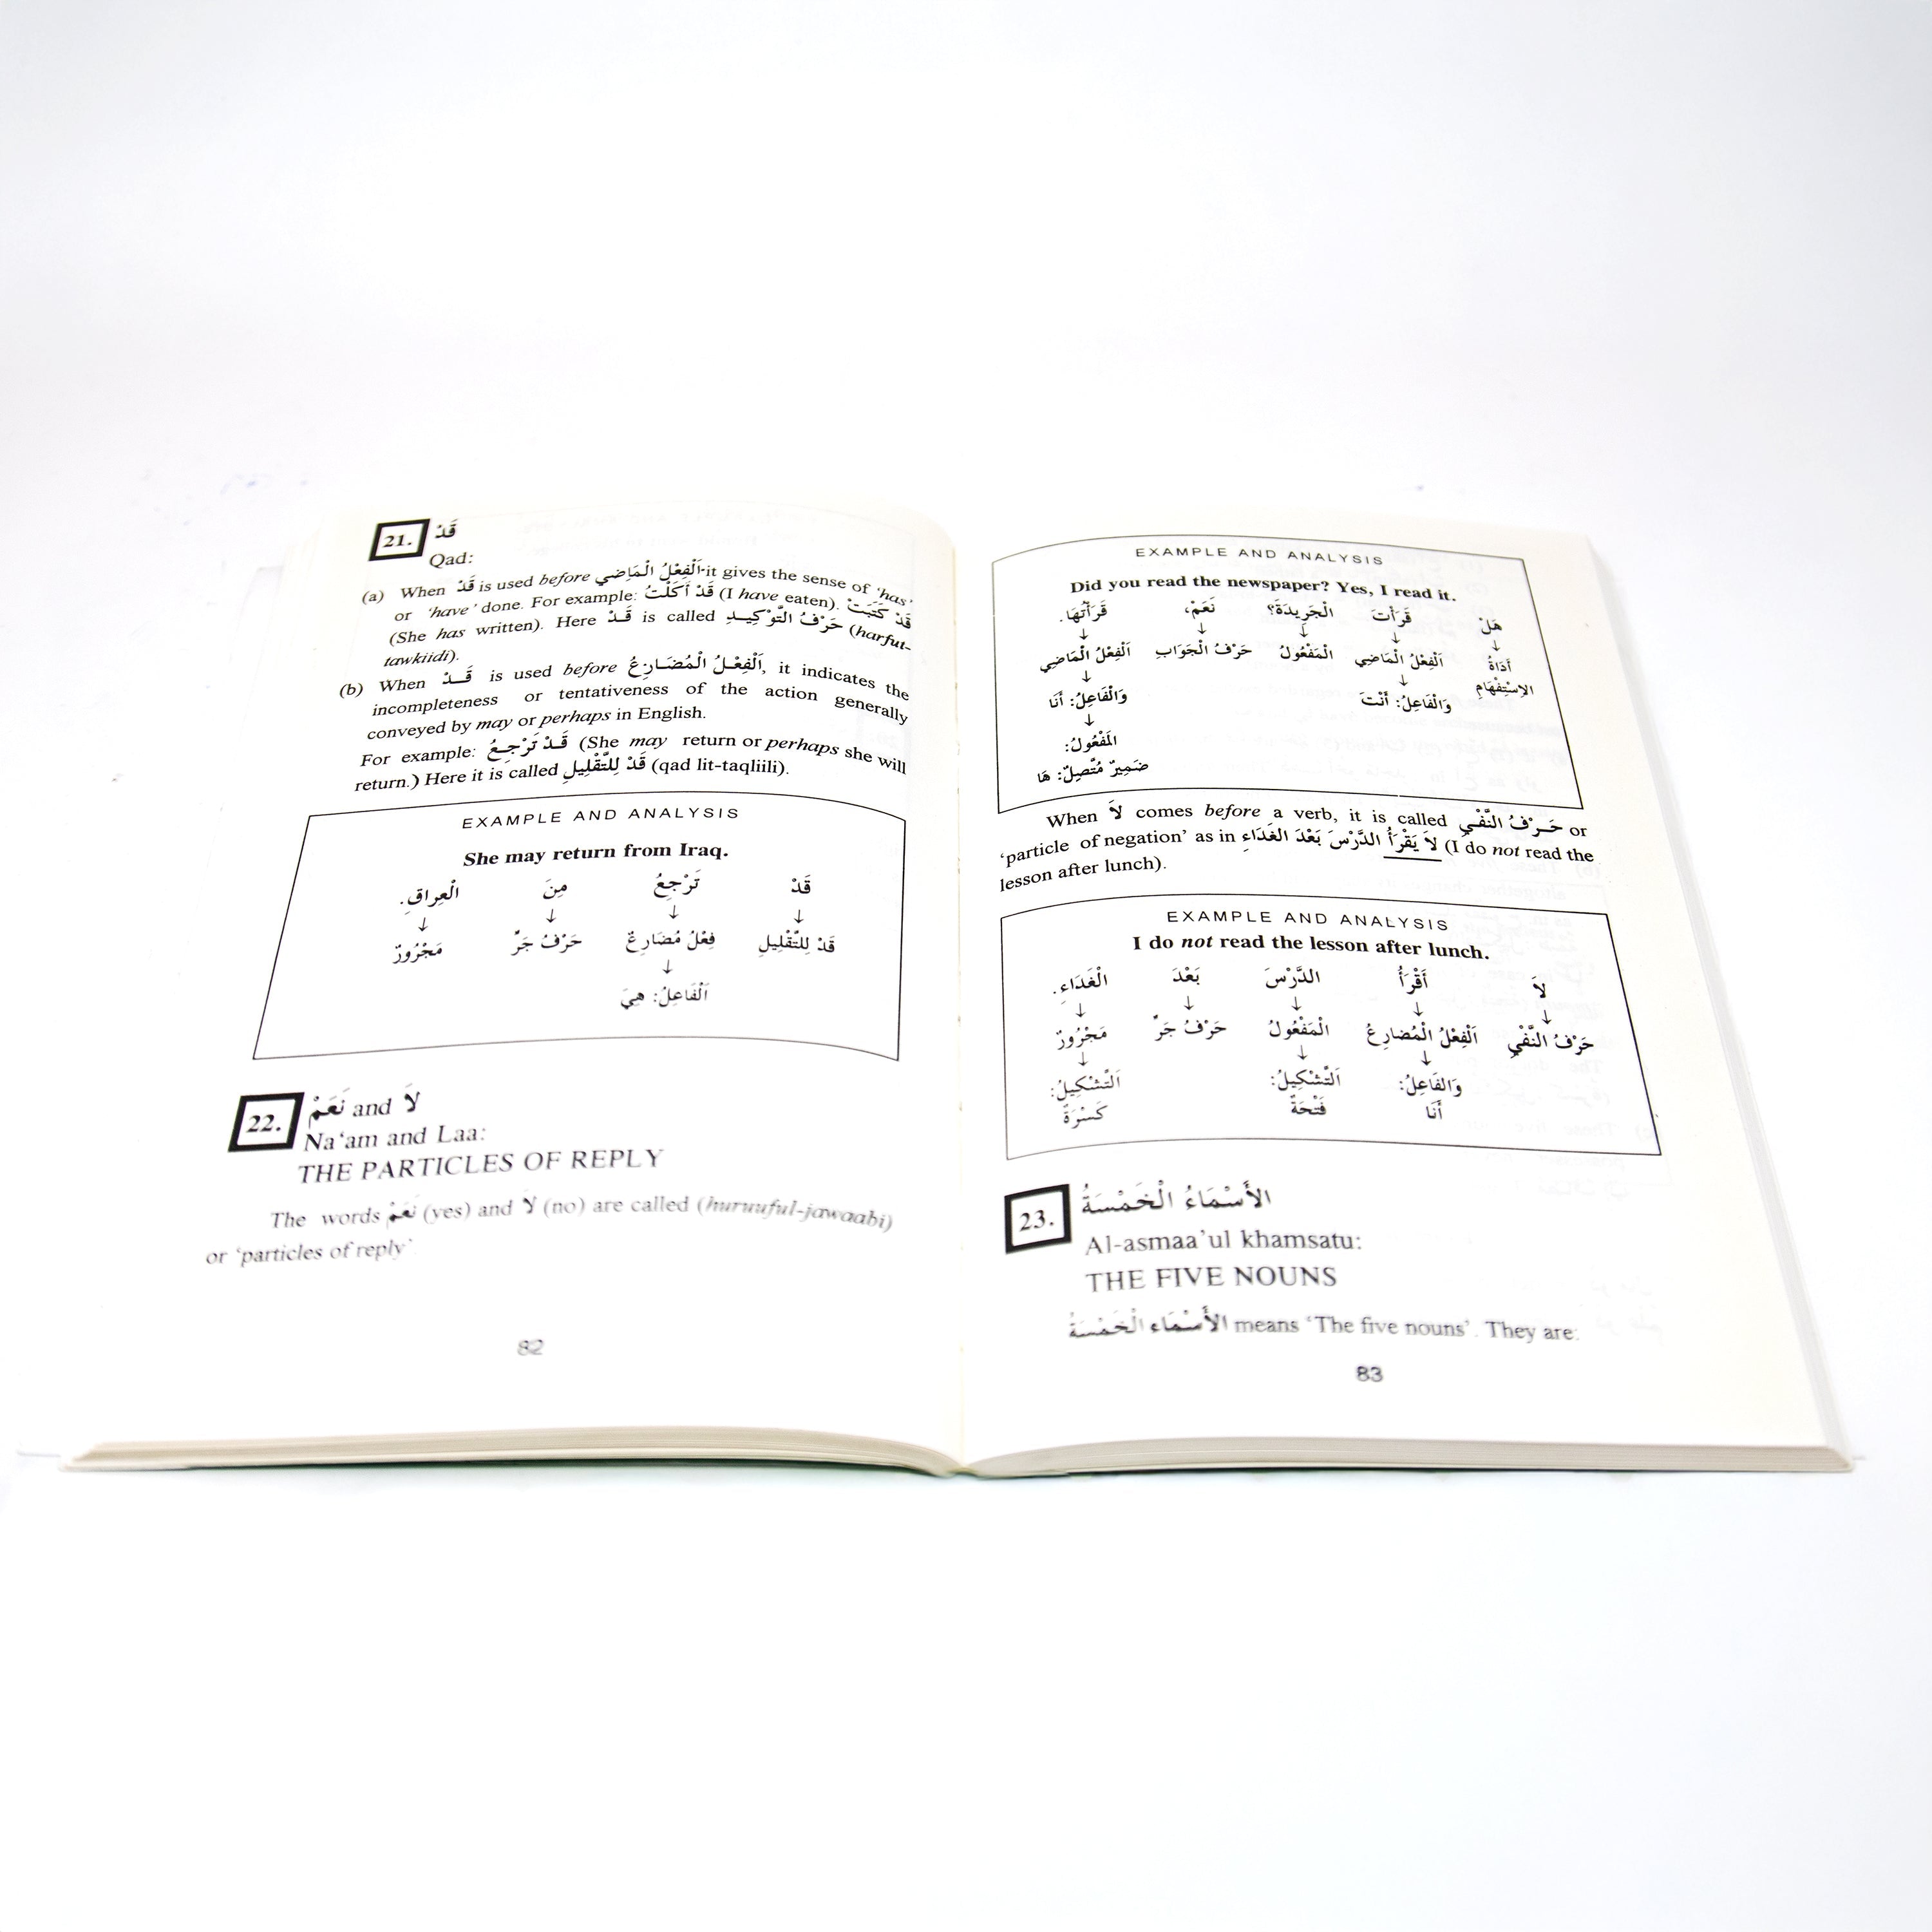 21. قَدْ
Qad:
(a) When قَدْ is used before اَلْفِعْلُ الْمَاضِي it gives the sense of ‘has’
or ‘have’ done. For example: قَدْ أَكَلْتُ (I have eaten). قَدْ كَتَبَتْ
(She has written). Here قَدْ is called حَرْفُ التَّوْكِيدِ (harfut-
tawkiidi).
(b) When قَدْ is used before اَلْفِعْلُ الْمُضَارِعُ, it indicates the
incompleteness or tentativeness of the action generally
conveyed by may or perhaps in English.
For example: قَدْ تَرْجِعُ (She may return or perhaps she will
return.) Here it is called قَدْ لِلتَّقْلِيلِ (qad lit-taqliili).
EXAMPLE AND ANALYSIS
She may return from Iraq.
قَدْ تَرْجِعُ مِنَ الْعِرَاقِ.
↓ ↓ ↓ ↓
قَدْ لِلتَّقْلِيلِ فِعْلٌ مُضَارِعٌ حَرْفُ جَرٍّ مَجْرُورٌ
↓
اَلْفَاعِلُ: هِيَ
22. نَعَمْ and لاَ
Na‘am and Laa:
THE PARTICLES OF REPLY
The words نَعَمْ (yes) and لاَ (no) are called (huruuful-jawaabi)
or ‘particles of reply’
82
EXAMPLE AND ANALYSIS
Did you read the newspaper? Yes, I read it.
هَلْ قَرَأْتَ الْجَرِيدَةَ؟ نَعَمْ، قَرَأْتُهَا.
↓ ↓ ↓ ↓ ↓
أَدَاةُ اَلْفِعْلُ الْمَاضِي الْمَفْعُولُ حَرْفُ الْجَوَابِ اَلْفِعْلُ الْمَاضِي
الاِسْتِفْهَامِ ↓ ↓
وَالْفَاعِلُ: أَنْتَ وَالْفَاعِلُ: أَنَا
↓
الْمَفْعُولُ:
ضَمِيرٌ مُتَّصِلٌ: هَا
When لاَ comes before a verb, it is called حَرْفُ النَّفْيِ or
‘particle of negation’ as in لاَ يَقْرَأُ الدَّرْسَ بَعْدَ الغَدَاءِ (I do not read the
lesson after lunch).
EXAMPLE AND ANALYSIS
I do not read the lesson after lunch.
لاَ أَقْرَأُ الدَّرْسَ بَعْدَ الْغَدَاءِ.
↓ ↓ ↓ ↓ ↓
حَرْفُ النَّفْيِ اَلْفِعْلُ الْمُضَارِعُ الْمَفْعُولُ حَرْفُ جَرٍّ مَجْرُورٌ
↓ ↓ ↓
وَالفَاعِلُ: اَلتَّشْكِيلُ: اَلتَّشْكِيلُ:
أَنَا فَتْحَةٌ كَسْرَةٌ
23. الأَسْمَاءُ الْخَمْسَةُ
Al-asmaa’ul khamsatu:
THE FIVE NOUNS
الأَسْمَاء الْخَمْسَةُ means ‘The five nouns’. They are:
83